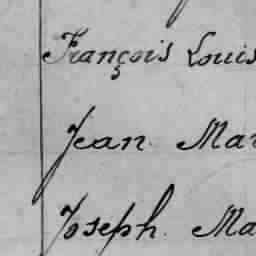 François Louis
Jean Mar
Joseph Ma